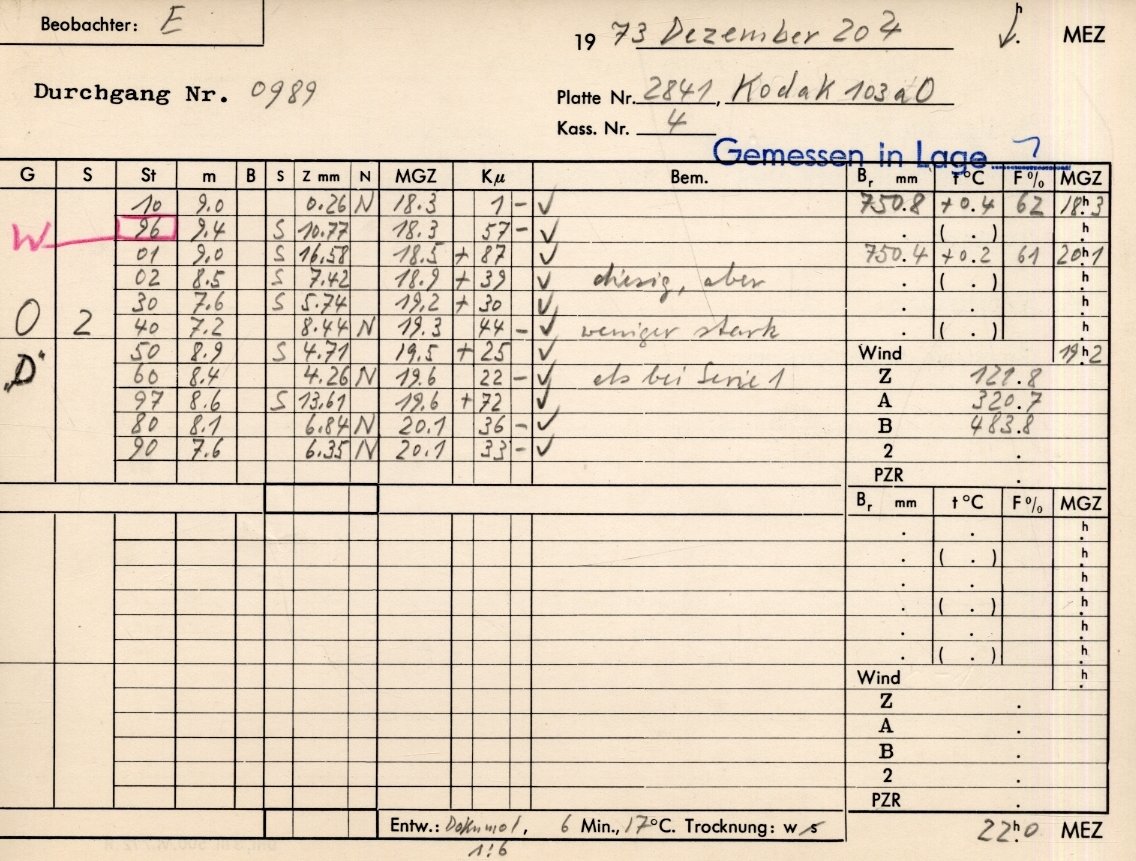 Beobachter: E
19 73 Dezember 20 h. MEZ
Durchgang Nr. 0989
Platte Nr. 2841, Kodak 103aO
Kass. Nr. 4
Gemessen in Lage
G S St m B S Z mm N MGZ Kμ Bem. Br mm t °C F % MGZ
10 9.0 0.26 N 18.3 1 – ✓ 750.8 +0.4 62 18h3
W 96 9.4 S 10.77 18.3 57 – ✓ . ( . ) h.
01 9.0 S 16.58 18.5 + 87 ✓ 750.4 +0.2 61 20h1
02 8.5 S 7.42 18.9 + 39 ✓ diesig, aber . ( . ) h.
30 7.6 S 5.74 19.2 + 30 ✓ . . h.
O 2 40 7.2 8.44 N 19.3 44 – ✓ weniger stark . ( . ) h.
50 8.9 S 4.71 19.5 + 25 ✓ Wind 19h2
„D“ 60 8.4 4.26 N 19.6 22 – ✓ als bei Serie 1 Z 129.8
97 8.6 S 13.61 19.6 + 72 ✓ A 320.7
80 8.1 6.84 N 20.1 36 – ✓ B 483.8
90 7.6 6.35 N 20.1 33 – ✓ 2 .
PZR .
Br mm t °C F % MGZ
. . h.
. ( . ) h.
. . h.
. ( . ) h.
. . h.
. ( . ) h.
Wind h.
Z .
A .
B .
2 .
PZR .
Entw.: Dokumol, 6 Min., 17 °C. Trocknung: w s 22h0 MEZ
1:6